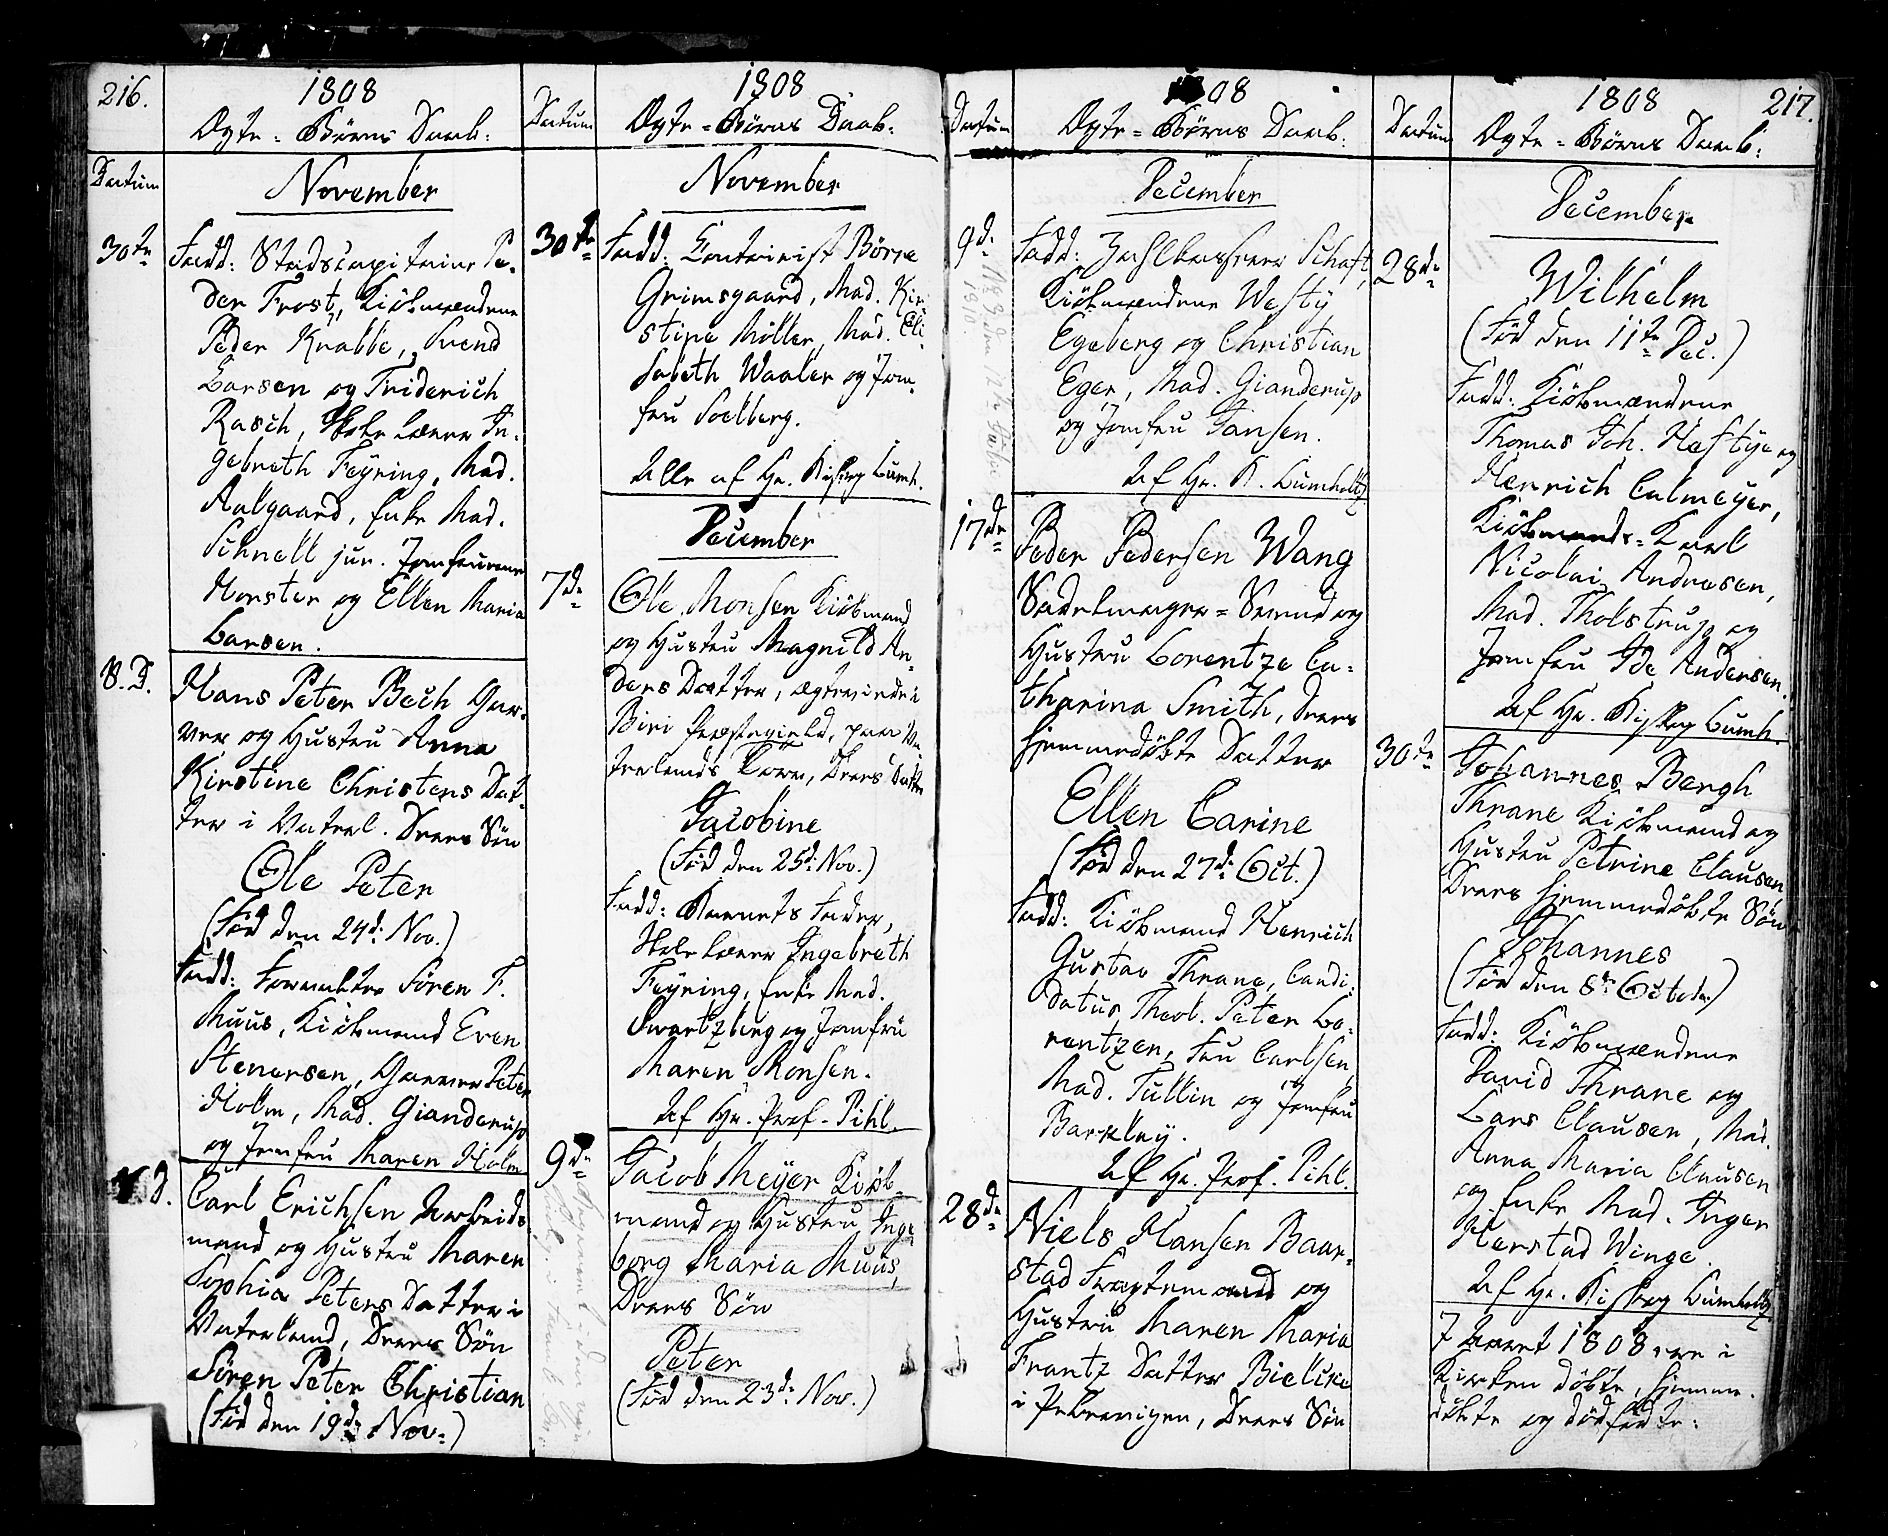 216.
1808
Ægte = Børns Daab:
Datum
November
30te
Fadd: Stadscapitaine Pe-
der Frost, Kiöbmændene
Peder Knabbe, Svend
Larsen og Friderich
Rasch, Skolelærer In-
gebreth Feÿring, Mad.
Aalgaard, Enke Mad.
Schnell jun. Jomfruerne
Horster og Ellen Maria
Larsen.
S. D.
Hans Peter Bech Gar-
ver og Hustru Anna
Kirstine Christens Dat-
ter i Vaterl. Deres Sön
Ole Peter
(Föd den 24d: Nov.)
Fadd: Forvalter Sören F.
Muus, Kiöbmand Even
Stenersen, Garver Peter
Holm, Mad. Gianderup
og Jomfru Maren Holm
S. D.
Carl Erichsen Arbeids
mand og Hustru Maren
Sophia Peters Datter i
Vaterland, Deres Sön
Sören Peter Christian
(Föd den 19de Nov:)
Datum
1808
Ægte = Børns Daab:
November
30te
Fadd: Contorist Börre
Grimsgaard, Mad. Kir-
stine Möller, Mad. Eli-
sabeth Waaler og Jom-
fru Soelberg.
Alle af Hr. Cumh.
December
7de
Ole Monsen Kiöbmand
og Hustru Magnild An-
ders Datter, i
Biri Præstegield, paa
Deres Datter
Jacobine
(Föd den 25d: Nov.)
Fadd: Barnets Fader,
Skolelærer Ingebreth
Feÿring, Enke Mad.
Swartzberg og Jomfru
Maren Monsen.
Af Hr. Prof. Pihl.
9de
Jacob Meÿer Kiöb-
mand og Hustru Inge-
borg Maria Muus,
Deres Sön
Peter
(Föd den 23d: Nov.)
Datum
1808
Ægte = Børns Daab:
December
9d:
Fadd: Schaft,
Kiöbmændene Westÿ
Egeberg og Christian
Eger, Mad. Gianderup
og Jomfru Jansen.
Af Hr. K. Cumholtz
17de
Peder Pedersen Wang
Sadelmager = Svend og
Hustru Lorentze Ca-
tharina Smith, Deres
hjemmedöbte Datter
Ellen Carine
(Föd den 27d: Oct.)
Fadd: Kiöbmand Henrich
Gustav Thrane, Candi-
datus Theol. Peter Lo-
rentzen, Fru Carlsen,
Mad. Tullin og Jomfru
Barkley.
Af Hr. Prof. Pihl.
28de
Niels Hansen Baar-
stad Fragtemand og
Hustru Maren Maria
Frantz Datter Bielke
i Pebervigen, Deres Sön
Datum
1808
217.
Ægte = Børns Daab:
December
28de
Wilhelm
(Föd den 11te Dec.)
Fadd: Kiöbmændene
Thomas Joh. Heftye og
Henrich Calmeÿer,
Kiöbmands = Karl
Nicolai Andresen,
Mad. Tholstrup og
Jomfru Ide Andersen.
Af Hr. Cumh.
30te
Johannes Bergh
Thrane Kiöbmand og
Hustru Petrine Clausen
Deres hjemmedöbte Sön
Johannes
(Föd den 8de Octobr.)
Fadd: Kiöbmændene
David Thrane og
Lars Clausen, Mad.
Anna Maria Clausen
og Enke Mad. Inger
Herstad Winge.
Af Hr. Cumholtz
I Aaret 1808 ere i
Kirken döbte, hjemme-
döbte og dödfödte: